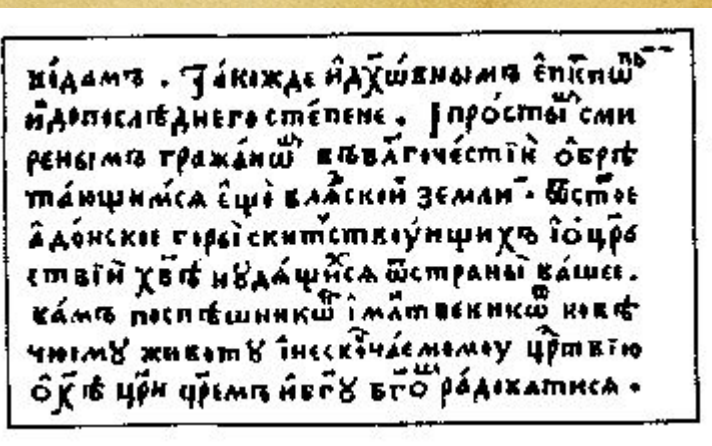 Та́кожде и҆дх҃ѡ́внымъ е҆пі҃кпѡⷨ
и҆допослѣднего сте́пене . І про́стыⷨ сми
ренымъ гражанѡⷨ въбл҃гоче́стїи ѻ҆брѣ
та́ющимсѧ е҆щѐ влѧ́ской земли . ѿстое
а҆до́нское горы̀ скитствоу́ющихъ і҆ѻ҆црⷭ҇
ствїи хв҃ѣ нꙋда́щиⷯсѧ ѿстраны̀ ва́шее .
ва́мъ поспѣшникѡⷨ і҆мл҃твеникѡⷨ ковѣ
чномꙋ животꙋ і҆неско́нчаемомоу цр҃твїю
ѻ҆х҃ѣ цр҃и цр҃емъ и҆бг҃ꙋ бг҃ѡⷨ ра́доватисѧ .